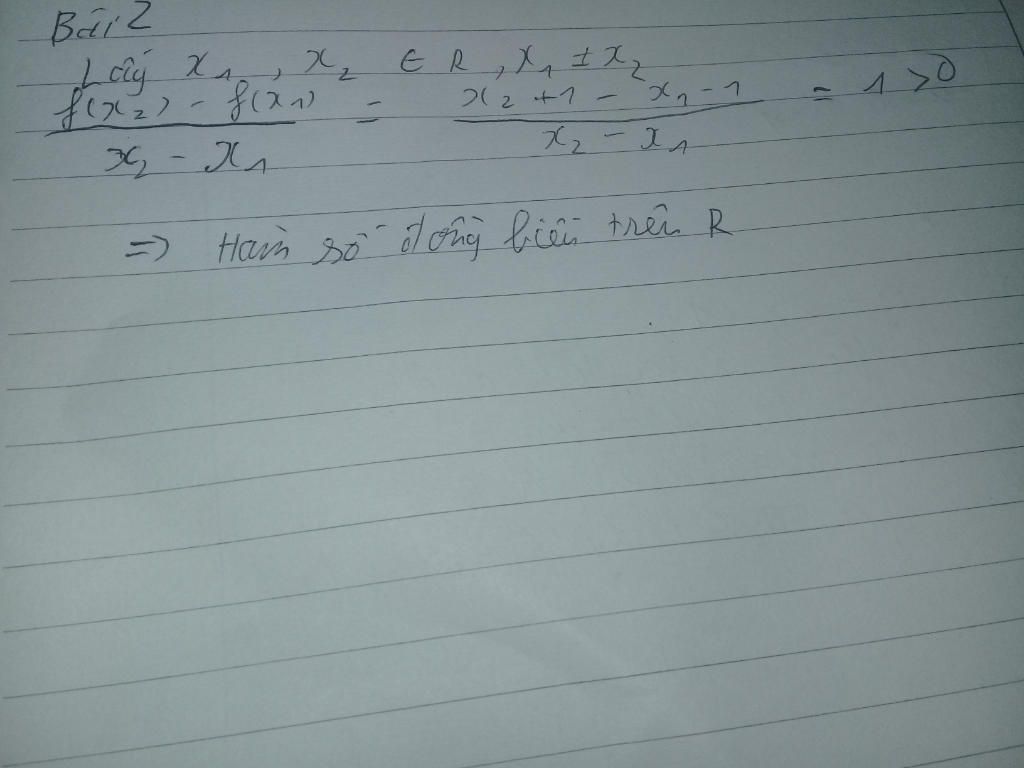 Bài 2
Lấy x₁, x₂ ∈ R, x₁ ± x₂
f(x₂) - f(x₁) / x₂ - x₁ = x₂ + 1 - x₁ - 1 / x₂ - x₁ = 1 > 0
=> Hàm số đồng biến trên R